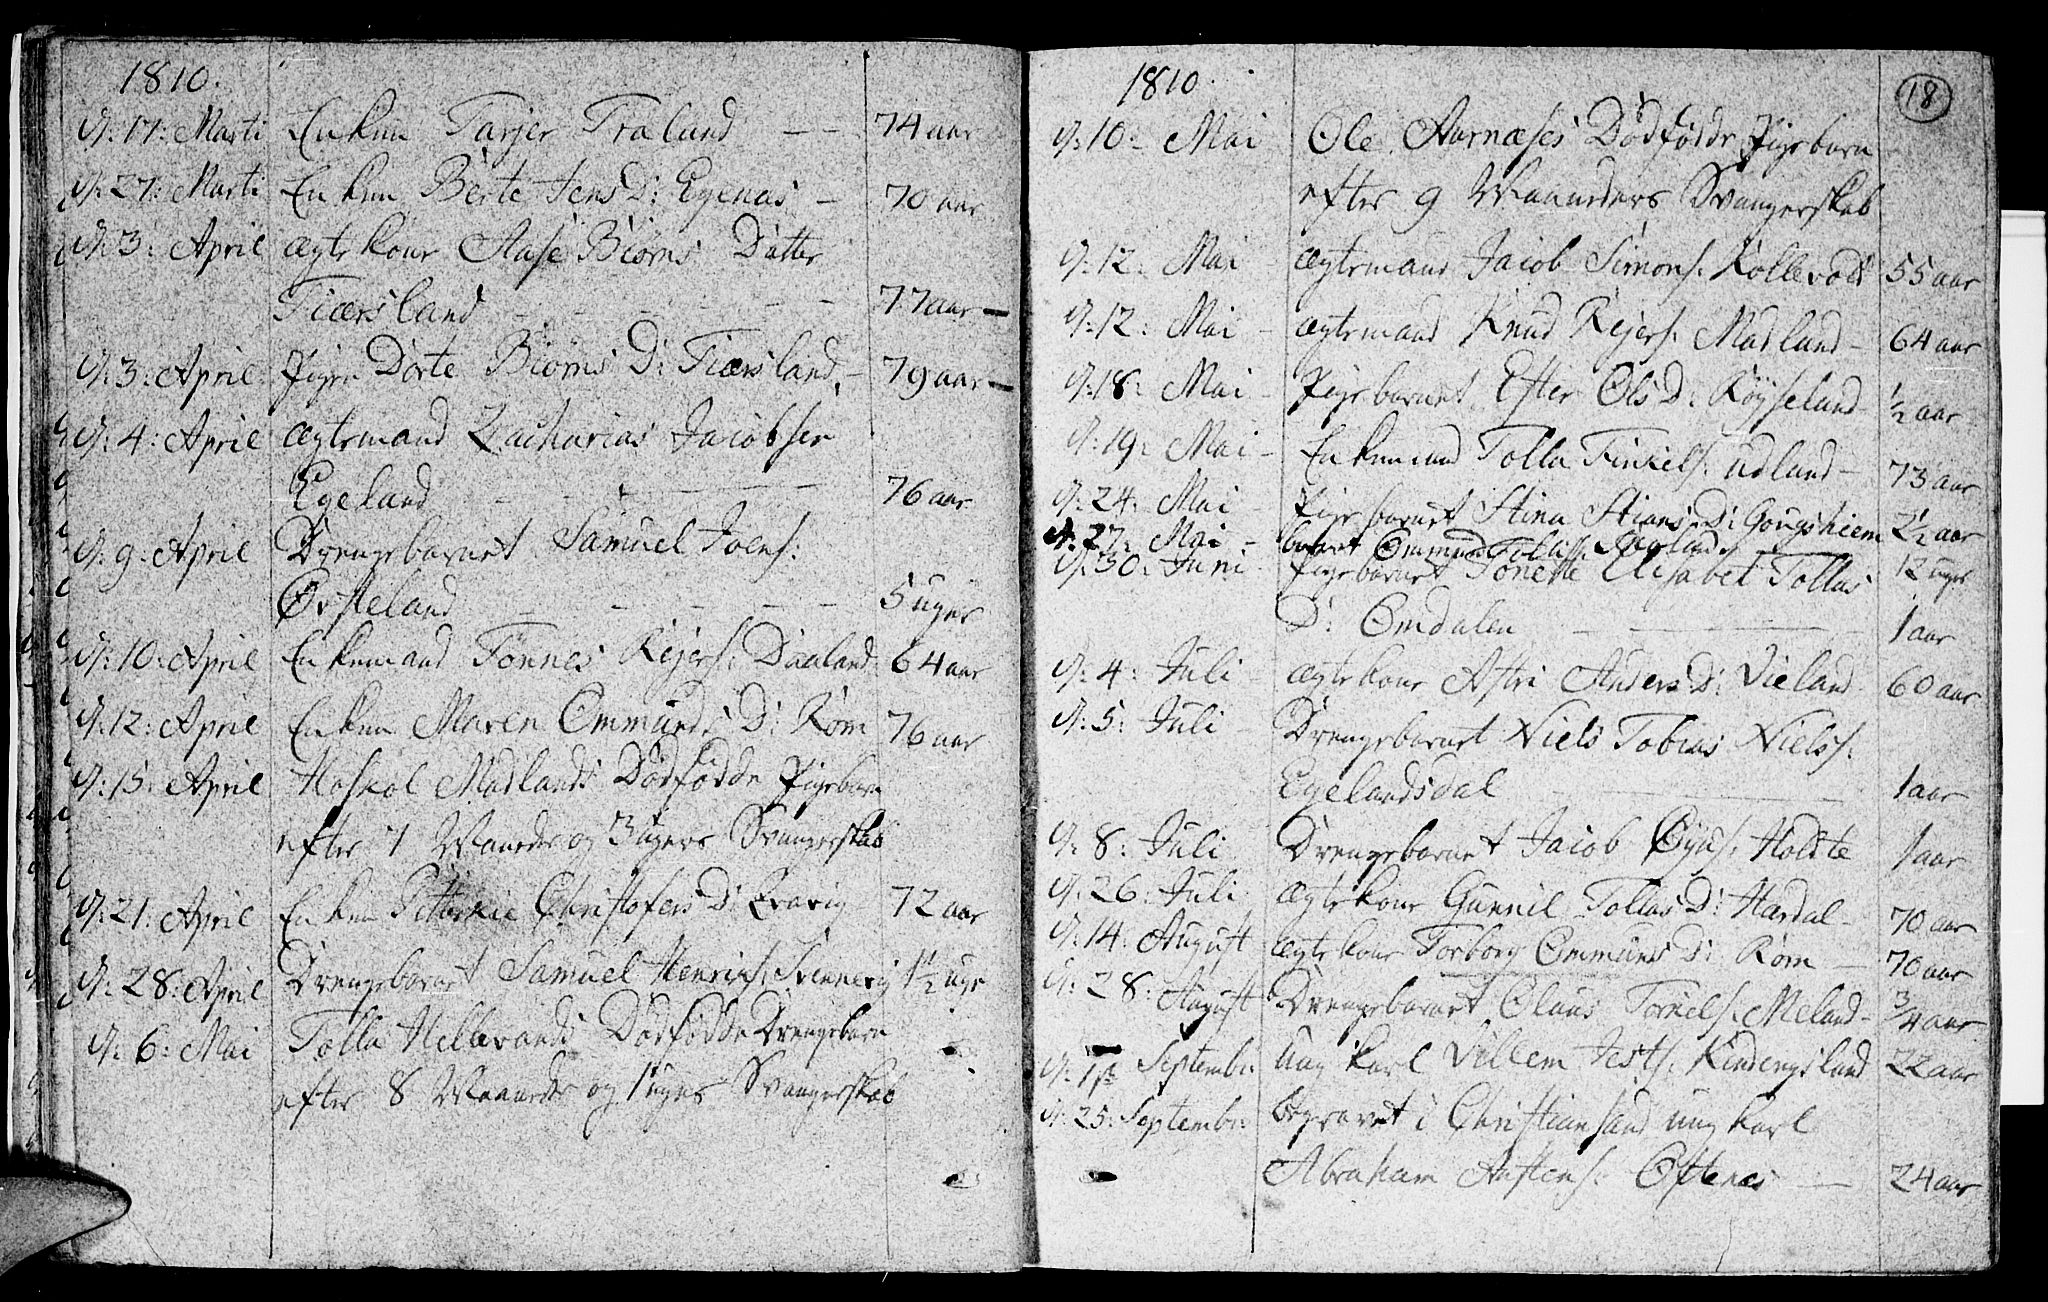 1810.
d: 17: Marti Enken Tarjer Træland — — 74 aar
d: 27: Marti Enken Berte Jens D: Egenæs — 70 aar
d: 3: April ægte kone Aase Biørns Datter
Fiærsland — — — 77 aar —
d: 3: April Pigen Dorte Biørns D: Fiærsland, — 79 aar —
d: 4: April ægtemand Zacharias Jacobsen
Egeland — — — 76 aar
d: 9: April Drengebarnet Samuel Joens:
Ørsteland — — — 5 uger
d: 10: April Enkemand Tønnes Rejers: Daaland 64 aar
d: 12: April Enken Maren Ommunds D: Røm 76 aar
d: 15: April Hoskol Madlands Dødfødde Pigebarn
efter 7 Maaneder og 3 ugers Svangerskab
d: 21: April Enken Christofers D: 72 aar
d: 28: April Drengebarnet Samuel Henrics: Svennevig 1½ uge
d: 6: Mai Tolla Hellevands Dødfødde Drengebarn
efter 8 Maaneder og 1 uges Svangerskab
18
1810.
d: 10: Mai Ole Aarnæses Dødfødde Pigebarn
efter 9 Maaneders Svangerskab
d: 12: Mai ægtemand Jacob Simons: Kollevold 55 aar
d: 12: Mai — ægtemand Knud Rejers: Madland — 64 aar
d: 18: Mai — Pigebarnet Efter Ols D: Røyseland — ½ aar
d: 19: Mai — Enkemand Tolla Finkels: Udland — 73 aar
d: 24: Mai — Pigebarnet Stina Stians D: Gougshiem 2½ aar
d: 27: Mai — barnet Ommund Tollis: 12 uger
d: 30: Juni — Pigebarnet Tonette Elisabet Tollas
D: Omdalen — — — 1 aar
d: 4: Juli — ægte kone Astri Anders D: Vieland — 60 aar
d: 5: Juli — Drengebarnet Niels Tobias Niels:
Egelandsdal — — — 1 aar
d: 8: Juli Drengebarnet Jacob Øyus: Holste 1 aar
d: 26: Juli ægte kone Gunnil Tollas D: Hærdal — 70 aar
d: 14: August ægte kone Torborg Ommuns D: Røm — 70 aar
d: 28: August Drengebarnet Olaus Torkels: Meland — ¾ aar
d: 1st Septembr: ung karl Villem Jests: Kindingsland 22 aar
d: 25: Septembr: begravet i Christiansand ung karl
Abraham Austens: Oftenæs — 24 aar